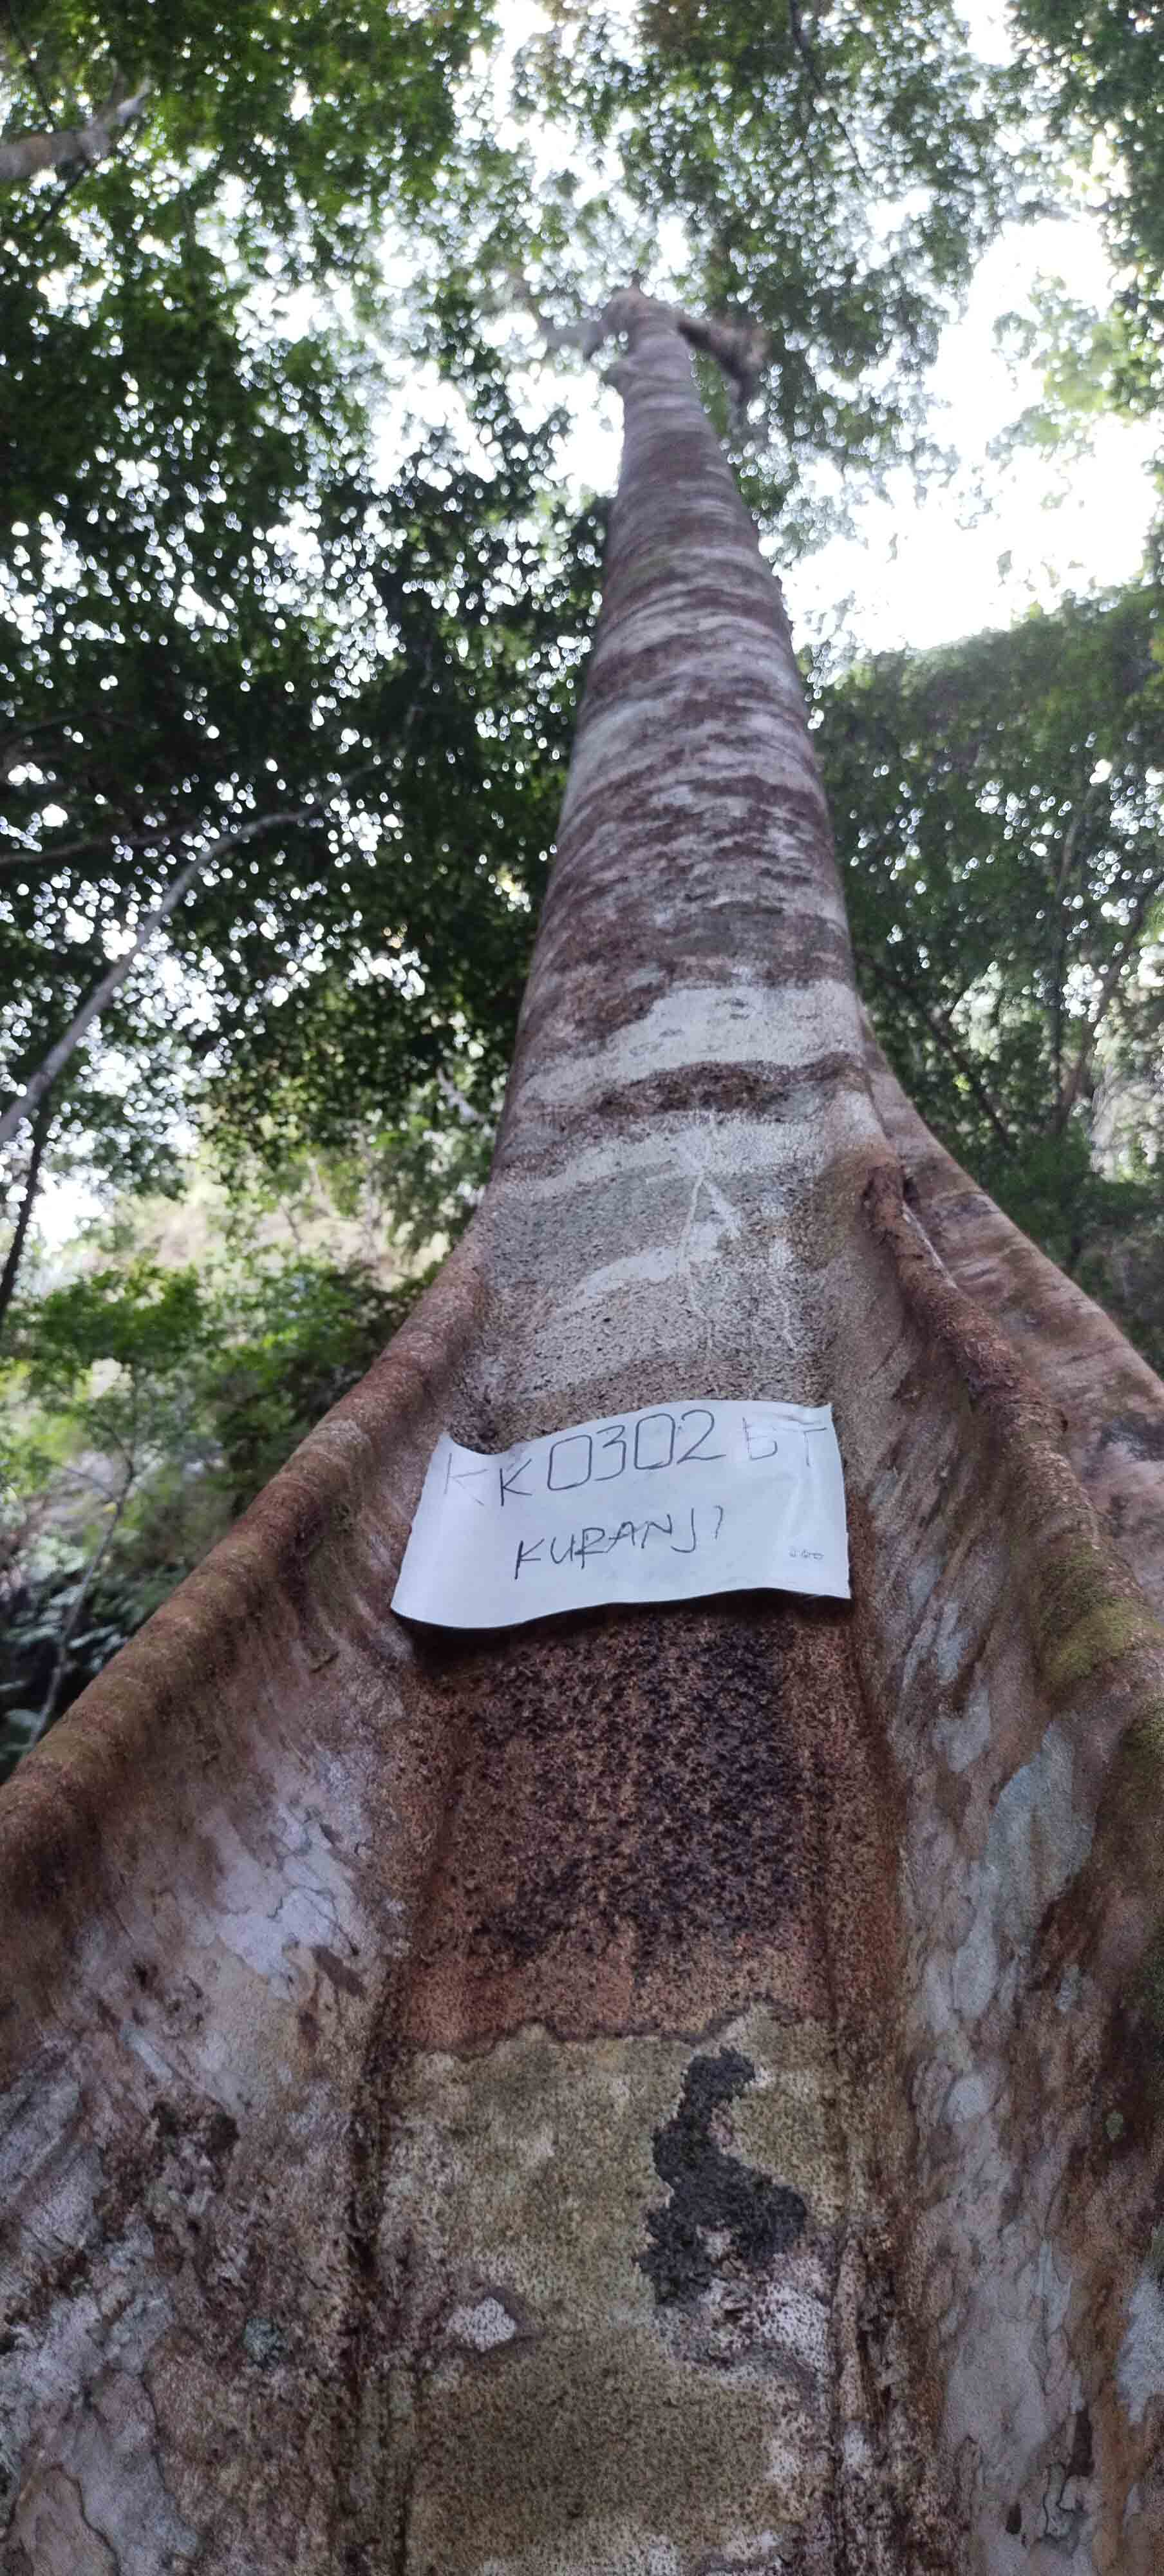 KK0302 BT
KURANJI